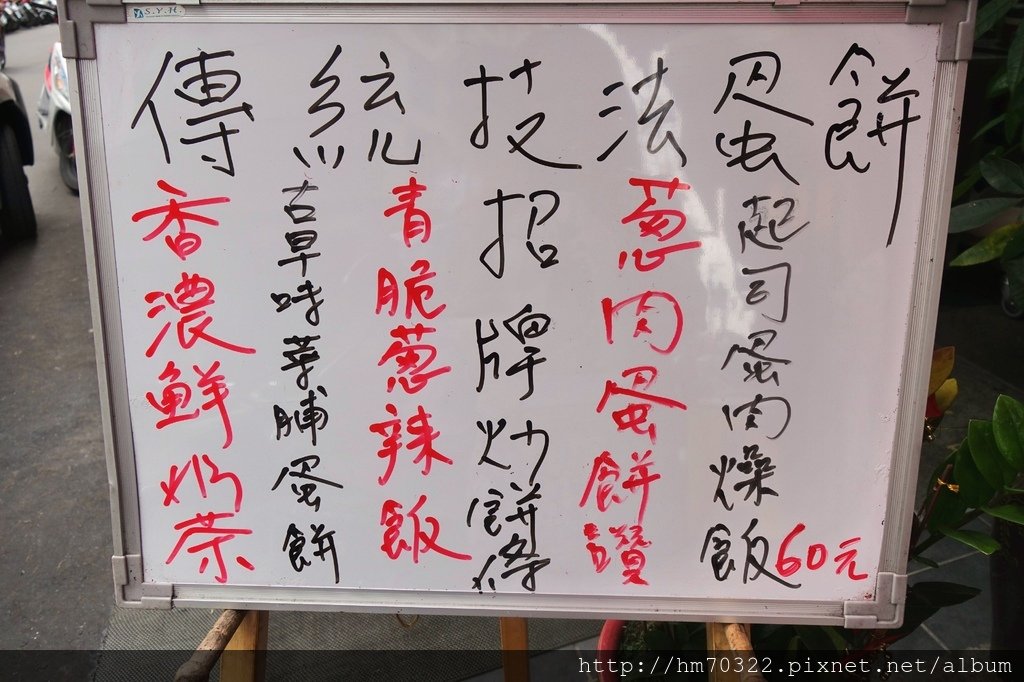 S.Y.H.
傳統技法蛋餅
起司蛋肉燥飯60元
蔥肉蛋餅讚
招牌炒餅條
青脆蔥辣飯
古早味菜脯蛋餅
香濃鮮奶茶
http://hm70322.pixnet.net/album